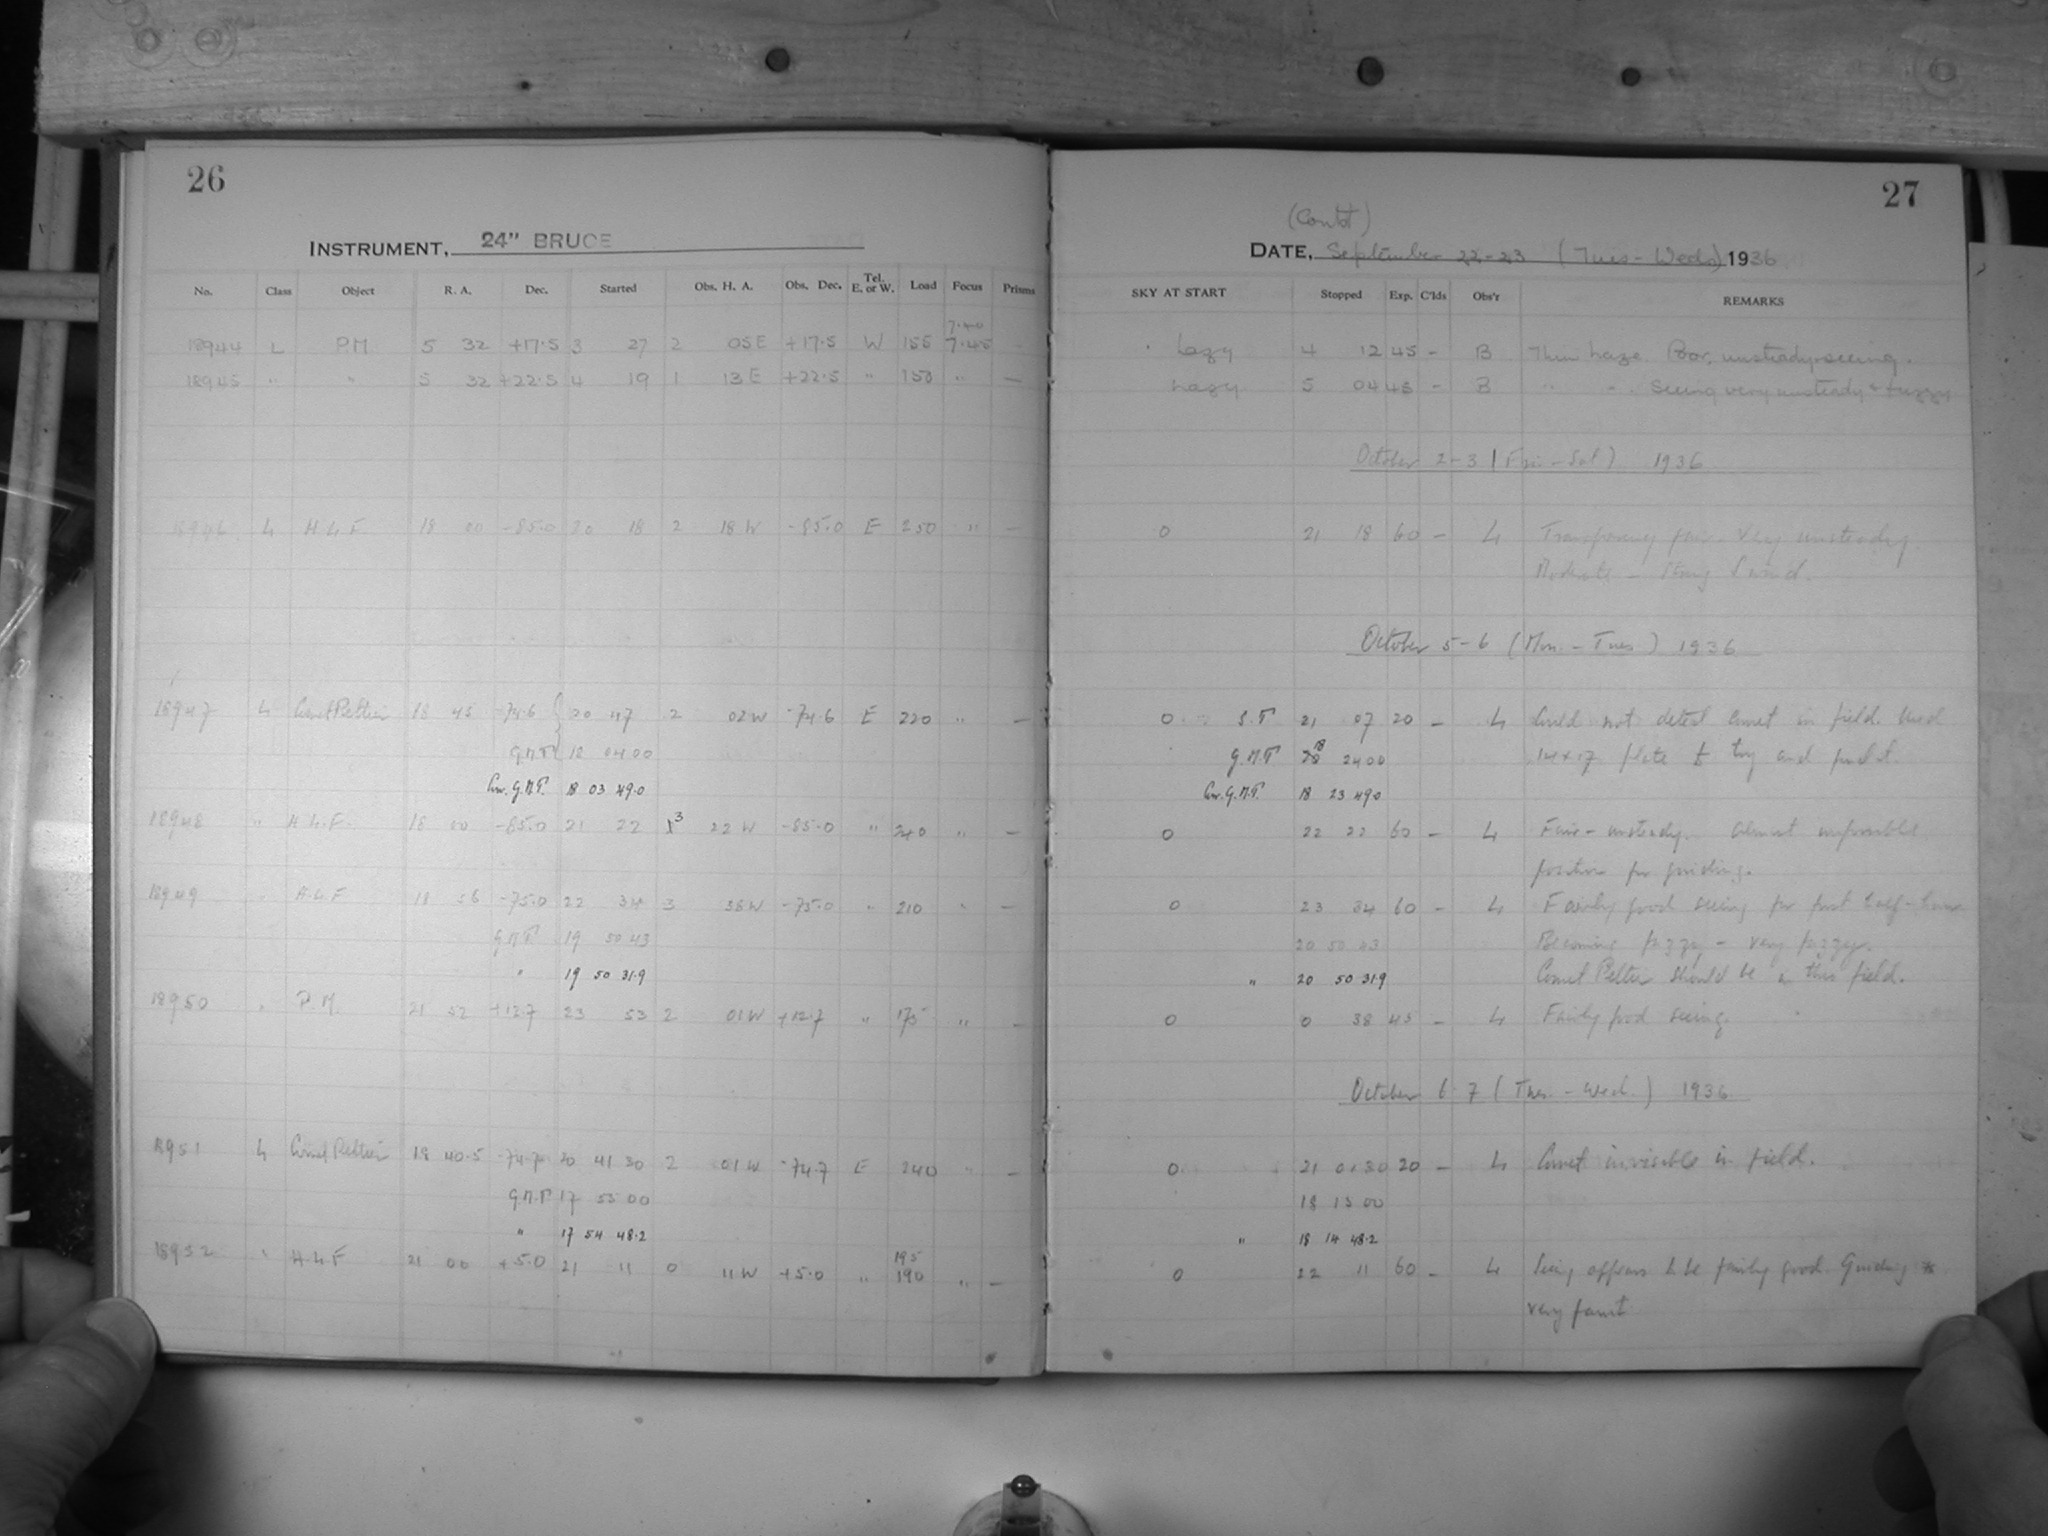 26
INSTRUMENT, 24" BRUCE
No. Class Object R. A. Dec. Started Obs. H. A. Obs. Dec. Tel. E. or W. Load Focus Prisms
7.40
18944 L PM 5 32 +17.5 3 27 2 05E +17.5 W 155 7.45
18945 " " 5 32 +22.5 4 19 1 13E +22.5 " 153 " —
18946 L H.L.F. 18 00 -85.0 20 18 2 18W -85.0 E 250 " —
18947 L Comet Peltier 18 45 -74.6 20 47 2 02W -74.6 E 220 " —
G.M.T. 18 04 00
Cor. G.M.T. 18 03 49.0
18948 " H.L.F. 18 00 -85.0 21 22 3 22W -85.0 " 240 " —
18949 " H.L.F 18 56 -75.0 22 34 3 38W -75.0 " 210 " —
G.M.T 19 50 43
" 19 50 31.9
18950 " P.M. 21 52 +12.7 23 53 2 01W +12.7 " 175 " —
18951 L Comet Peltier 18 40.5 -74.7 20 41 30 2 01W -74.7 E 240 " —
G.M.T 17 55 00
" 17 54 48.2
195
18952 " H.L.F 21 00 +5.0 21 11 0 11W +5.0 " 190 " —
27
(Contd)
DATE, September 22-23 (Tues-Weds) 1936
SKY AT START Stopped Exp. C'lds Obs'r REMARKS
hazy 4 12 45 - B Thin haze. Poor, unsteady seeing.
hazy 5 04 45 - B " " Seeing very unsteady + fuzzy
October 2-3 (Fri-Sat) 1936
0 21 18 60 - L Transparency fair. Very unsteady.
Moderate - strong S wind.
October 5-6 (Mon.-Tues) 1936
0 S.T 21 07 20 - L Could not detect comet in field. Used
G.M.T 18 24 00 14x17 plate to try and find it.
Cor. G.M.T. 18 23 49.0
0 22 22 60 - L Fair - unsteady. Almost impossible
position for guiding.
0 23 34 60 - L Fairly good seeing for first half-hour
20 50 43 Becoming fuzzy - very fuzzy.
" 20 50 31.9 Comet Peltier should be in this field.
0 0 38 45 - L Fairly good seeing.
October 6-7 (Tues.-Wed.) 1936
0 21 01 30 20 - L Comet invisible in field.
18 15 00
" 18 14 48.2
0 22 11 60 - L Seeing appears to be fairly good. Guiding *
very faint